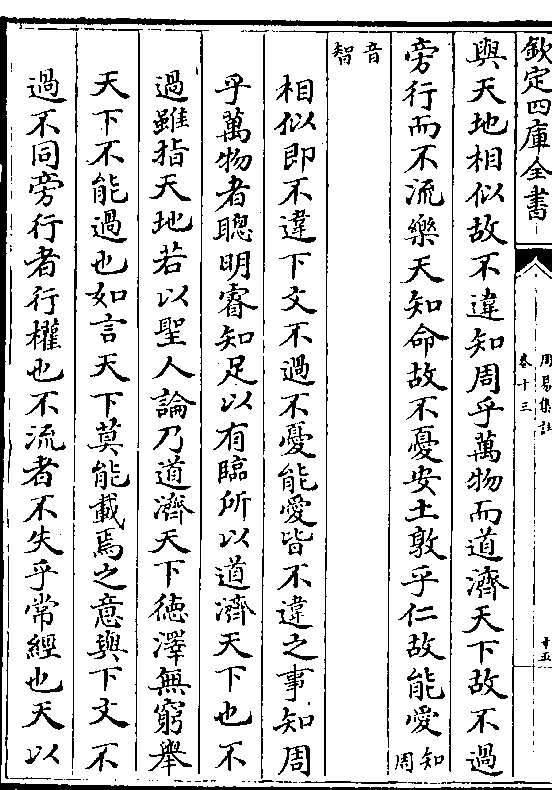 欽定四庫全書
周易集註
卷十三
十五
與天地相似故不違知周乎萬物而道濟天下故不過
旁行而不流樂天知命故不憂安土敦乎仁故能愛知周
音智
相似即不違下文不過不憂能愛皆不違之事知周
乎萬物者聰明睿知足以有臨所以道濟天下也不
過雖指天地若以聖人論乃道濟天下德澤無窮舉
天下不能過也如言天下莫能載焉之意與下文不
過不同旁行者行權也不流者不失乎常經也天以